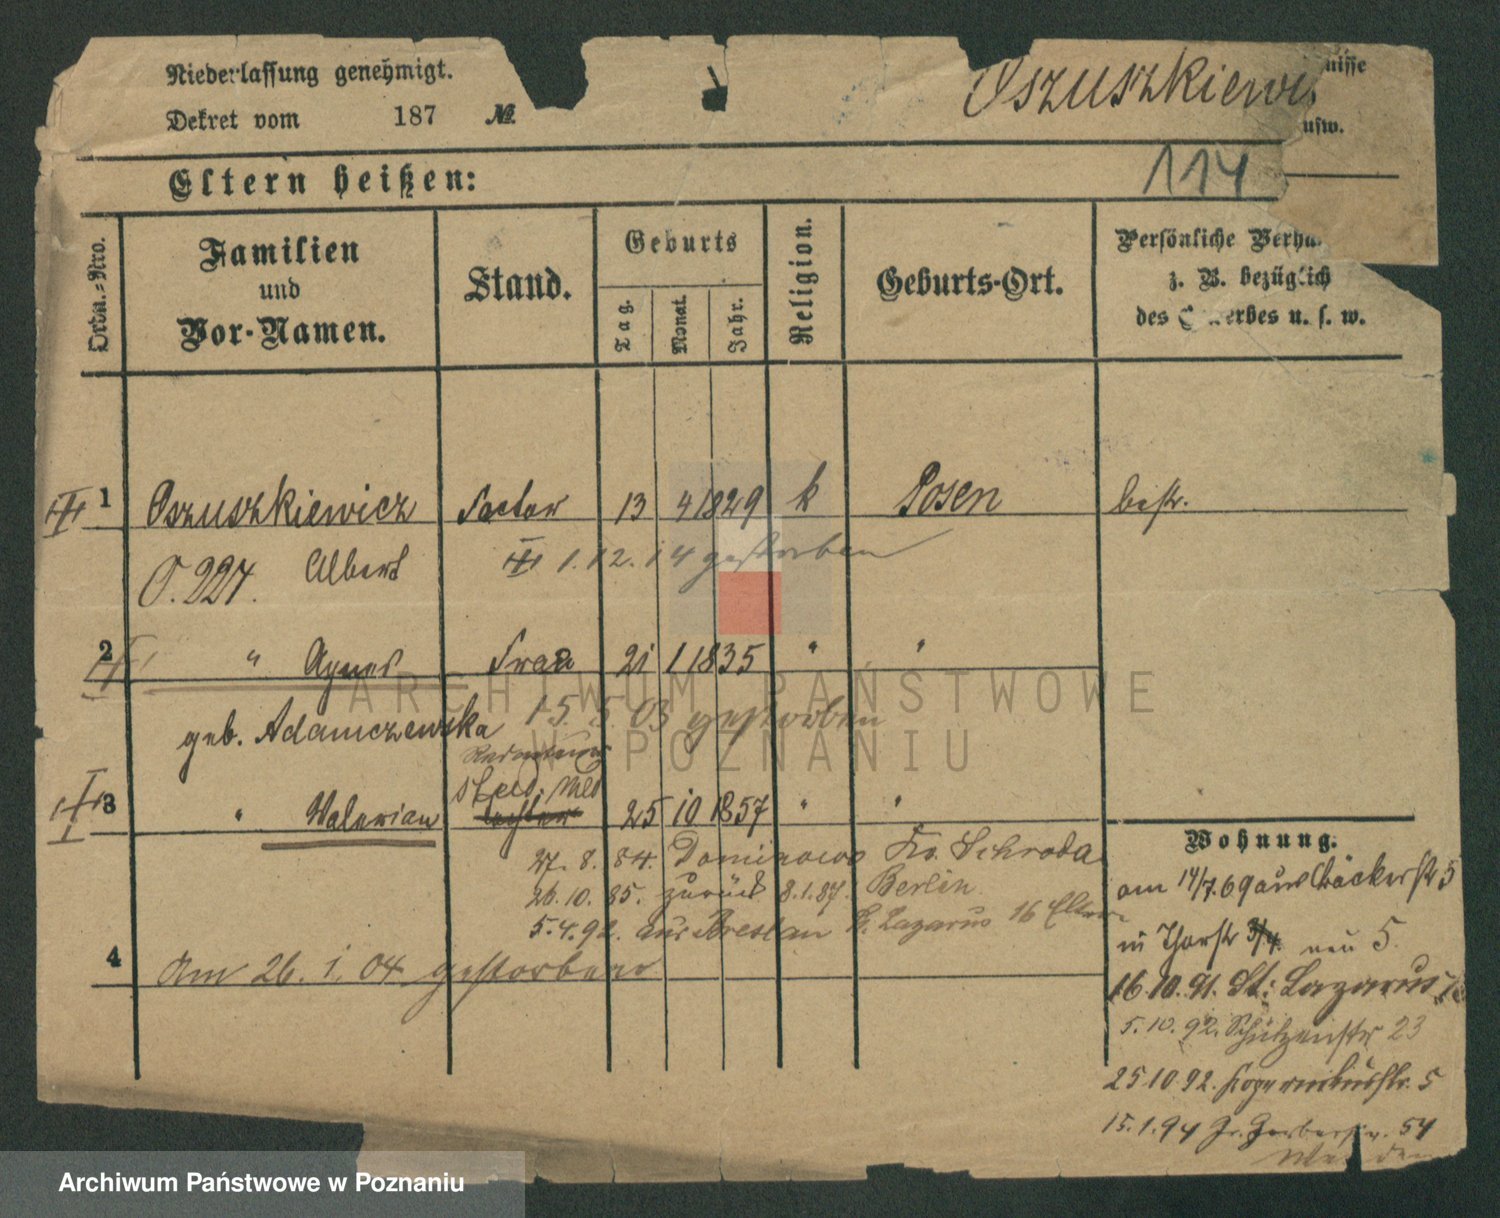 Niederlassung genehmigt.
Dekret vom 187 №.
Oszuszkiewi
nisse
usw.
Eltern heißen:
114
Ordn.-Nro.
Familien
und
Vor-Namen.
Stand.
Geburts
Tag.
Monat.
Jahr.
Religion.
Geburts-Ort.
Persönliche Verhä
z. B. bezüglich
des Gewerbes u. s. w.
1 Oszuszkiewicz Factor 13 4 1829 k Posen bestr.
O. 227. Albert 1.12.14 gestorben
2 " Agnes Frau 21 1 1835 " "
geb. Adamczewska 15 5 03 gestorben
3 " Valerian 25 10 1857 " "
27. 8. 84. Dominowo Kr. Schroda
26.10.85. zurück 8.1.87. Berlin
5.4.92. aus Breslau St. Lazarus 16 Eltern
4 Am 26. 1. 04 gestorben
Wohnung.
am 14/7.69 aus Bäckerstr 5
in Thorstr 3/4 neu 5.
16.10.91. St. Lazarus
5.10.92. Schützenstr 23
25.10.92. Kopernikusstr. 5
15.1.94 Gr. Gerberstr. 54
ARCHIWUM PAŃSTWOWE
W POZNANIU
Archiwum Państwowe w Poznaniu